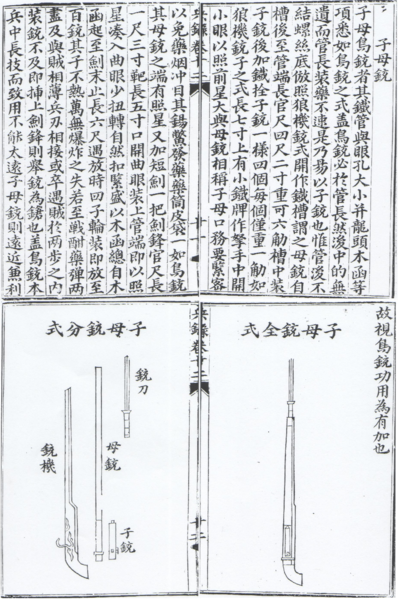 子母銃
子母鳥銃者其鐵管與眼孔大小并龍頭木函等
項悉如鳥銃之式蓋鳥銃必於管長然後中的無
遺而管長裝藥不速是乃易以子銃也惟管後不
結螺絲底倣照狼機銃式開作鐵槽謂之母銃自
槽後至管端長官尺四尺二寸重可六觔槽中裝
子銃後加鐵拴子銃一樣四個每個僅重一觔如
狼機銃子之式長七寸上有小鐵牌作擎手中開
小眼以照前星大與母銃相稱子母口務要緊密
兵錄卷十二
廿一
以免藥烟冲目其錫鱉發藥藥筒皮袋一如鳥銃
其母銃之端有照星又加短劍一把劍鋒官尺長
一尺三寸靶長五寸口開曲眼裝上管端即以照
星湊入曲眼少扭轉自然扣緊盛以木函總自木
函起至劍末止長六尺遇放時四子輪裝即放至
百銃其子不熱萬無爆炸之失若至戰酣藥彈两
盡及與賊相薄兵刃相接或卒遇賊於两步之内
裝銃不及即挿上劍鋒則舉銃為鎗也蓋鳥銃本
兵中長技而致用不能太遠子母銃則遠近利
故視鳥銃功用為有加也
子母銃全式
兵錄卷十二
廿二
子母銃分式
銃刀
母銃
子銃
銃機